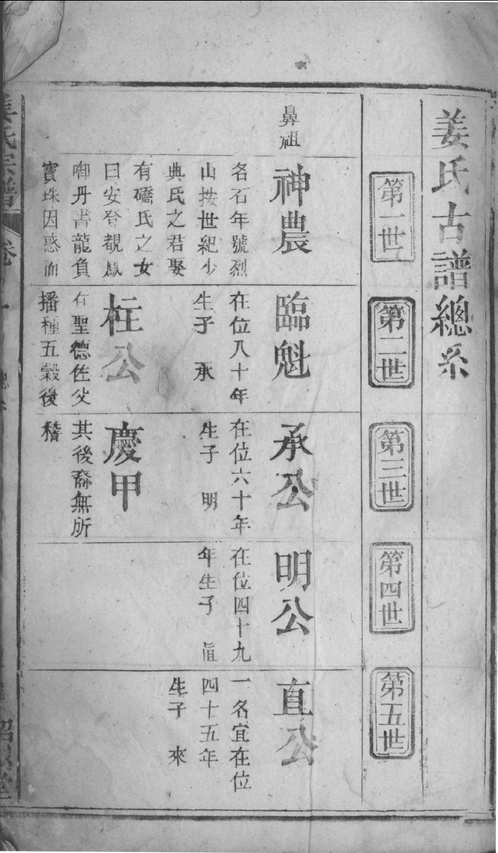 姜氏古譜總系
第一世
第二世
第三世
第四世
第五世
鼻祖
神農
名石年號烈
山按世紀少
典氏之君娶
有蟜氏之女
曰安登覩
啣丹書龍負
寶珠因感而
臨魁
在位八十年
生子 承
柱公
有聖德佐父
播種五穀後
承公
在位六十年
生子 明
慶甲
其後裔無所
稽
明公
在位四十九
年生子 直
直公
一名宜在位
四十五年
生子 來
姜氏宗譜
卷一
總系